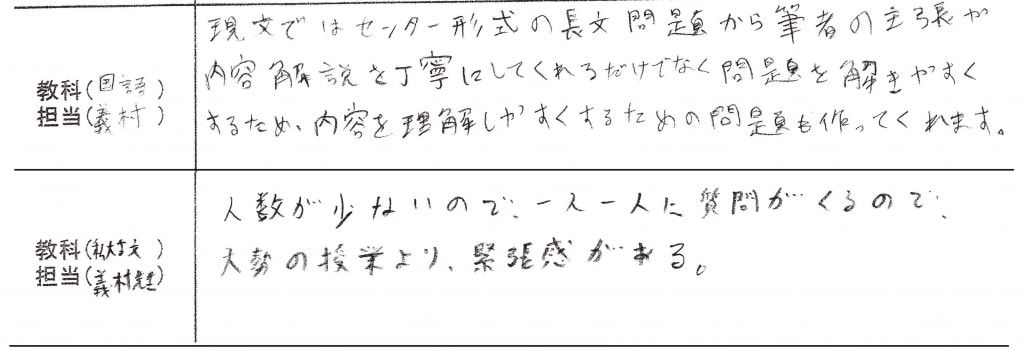 教科(国語)
担当(義村)
現文ではセンター形式の長文問題から筆者の主張や
内容解説を丁寧にしてくれるだけでなく問題を解きやすく
するため、内容を理解しやすくするための問題も作ってくれます。
教科(私大古文)
担当(義村先生)
人数が少ないので、一人一人に質問がくるので、
大勢の授業より、緊張感がある。